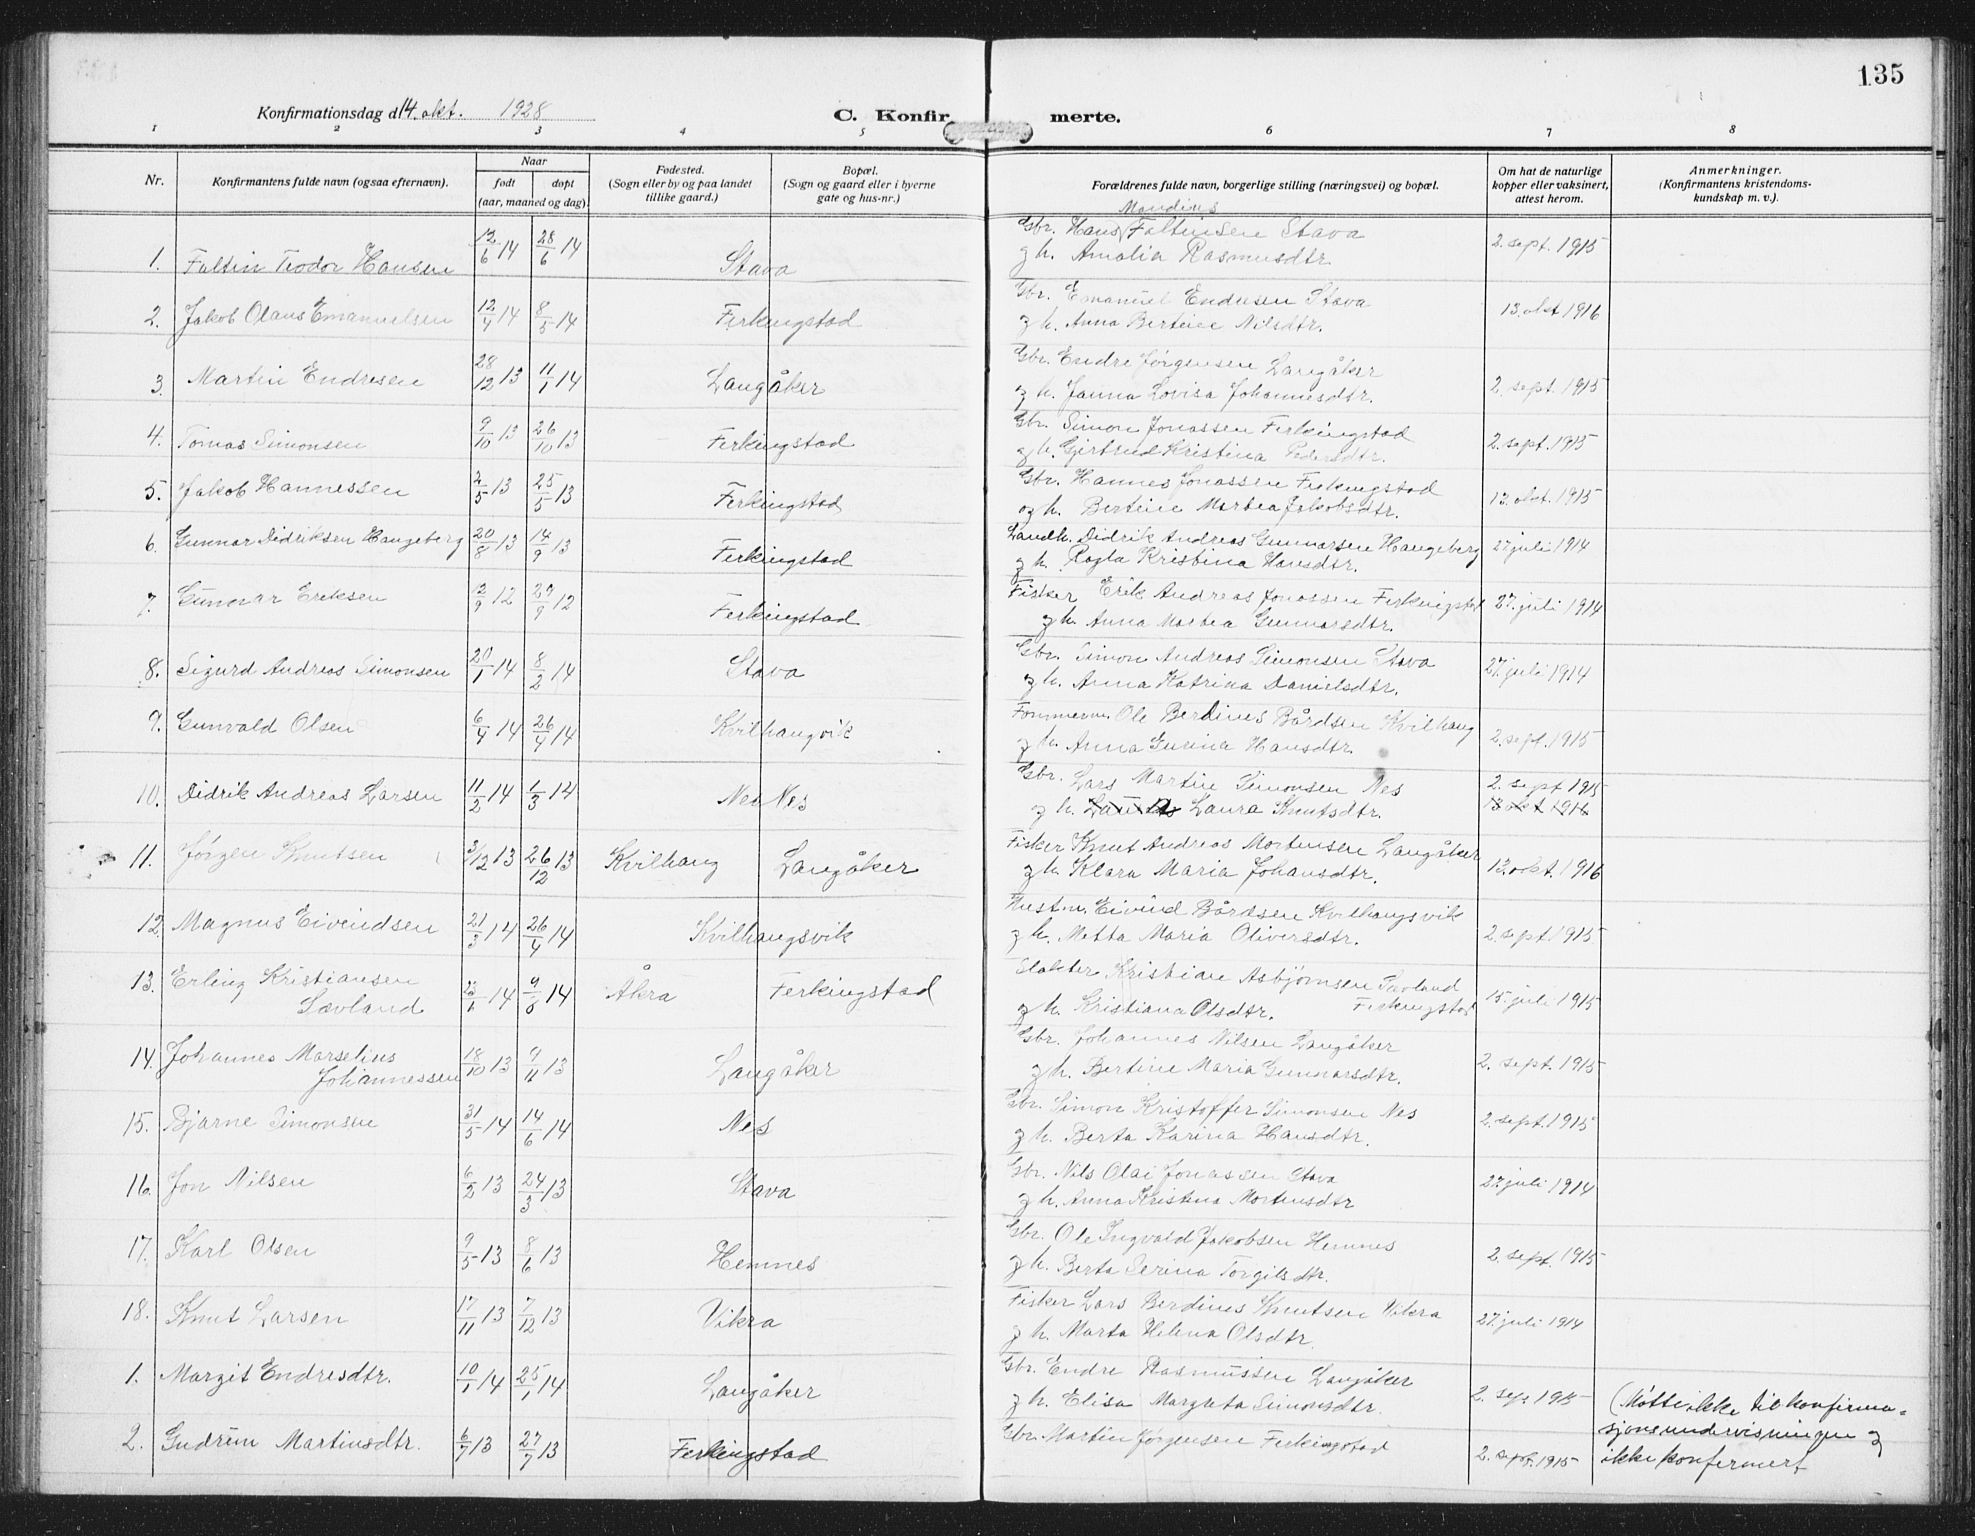 135
Konfirmationsdag d. 14. okt. 1928
C. Konfirmerte.
1 2 3 4 5 6 7 8
Nr.
Konfirmantens fulde navn (ogsaa efternavn).
Naar
født døpt
(aar, maaned og dag).
Fødested.
(Sogn eller by og paa landet
tillike gaard.)
Bopæl.
(Sogn og gaard eller i byerne
gate og hus-nr.)
Forældrenes fulde navn, borgerlige stilling (næringsvei) og bopæl.
Om hat de naturlige
kopper eller vaksinert,
attest herom.
Anmerkninger.
(Konfirmantens kristendoms-
kundskap m. v.).
Mandius
Gbr. Hans Faltinsen Stava
1. Faltin Teodor Hansen 12/6 14 28/6 14 Stava 2. sept. 1915
og h. Amalia Rasmusdtr.
Gbr. Emanuel Endresen Stava
2. Jakob Olaus Emanuelsen 12/4 14 8/5 14 Ferkingstad 13. okt 1916
og h. Anna Bertine Nilsdtr.
Gbr. Endre Jørgensen Langåker
3. Martin Endresen 28/12 13 11/1 14 Langåker 2. sept. 1915
og h. Janna Lovisa Johannesdtr.
Gbr. Simon Jonassen Ferkingstad
4. Tomas Simonsen 9/10 13 26/10 13 Ferkingstad 2. sept. 1915
og h. Gjertrud Kristina Pedersdtr.
Gbr. Hannes Jonassen Ferkingstad
5. Jakob Hannessen 2/5 13 25/5 13 Ferkingstad 13. okt. 1915
og h. Bertine Martea Jakobsdtr.
Landh. Didrik Andreas Gunnarsen Haugeberg
6. Gunnar Didriksen Haugeberg 20/8 13 14/9 13 Ferkingstad 27 juli 1914
og h. Ragla Kristina Hansdtr.
Fisker Erik Andreas Jonassen Ferkingstad
7. Gunnar Eriksen 12/9 12 29/9 12 Ferkingstad 27. juli 1914
og h. Anna Martea Gunnarsdtr.
Gbr. Simon Andreas Simonsen Stava
8. Sigurd Andreas Simonsen 20/1 14 8/2 14 Stava 27. juli 1914
og h. Anna Katrina Danielsdtr.
Tømmerm. Ole Berdines Bårdsen Kvilhaug
9. Gunvald Olsen 6/4 14 26/4 14 Kvilhaugvik 2. sept. 1915
og h. Anna Gurina Hansdtr.
Gbr. Lars Martin Simonsen Nes
10. Didrik Andreas Larsen 11/2 14 1/3 14 Nes Nes 2. sept 1915
og h. Laura Knutsdtr. 13 okt 1916
Fisker Knut Andreas Mortensen Langåker
11. Jørgen Knutsen 3/12 13 26/12 13 Kvilhaug Langåker 13. okt. 1916
og h. Klara Maria Johansdtr.
Hustm. Eivind Bårdsen Kvilhaugsvik
12. Magnus Eivindsen 21/3 14 26/4 14 Kvilhaugsvik 2. sept. 1915
og h. Metta Maria Oliversdtr.
Slakter Kristian Asbjørnsen Sævland
13. Erling Kristiansen
Sævland 14 14 Åkra Ferkingstad 15. juli 1915
og h. Kristiana Olsdtr. Ferkingstad
Gbr. Johannes Nilsen Langåker
14. Johannes Marselius
Johannessen 18/10 13 9/11 13 Langåker 2. sept. 1915
og h. Bertine Maria Gunnarsdtr.
Gbr. Simon Kristoffer Simonsen Nes
15. Bjarne Simonsen 31/5 14 14/6 14 Nes 2. sept. 1915
og h. Berta Karina Hansdtr.
Gbr. Nils Olai Jonassen Stava
16. Jon Nilsen 6/2 13 24/3 13 Stava 27. juli 1914
og h. Anna Kristina Mortensdtr
Gbr. Ole Ingvald Jakobsen Hemnes
17. Karl Olsen 9/5 13 8/6 13 Hemnes 2. sept. 1915
og h. Berta Serina Torgilsdtr.
Fisker Lars Berdines Knutsen Vikra
18. Knut Larsen 17/11 13 7/12 13 Vikra 27. juli 1914
og h. Marta Helena Olsdtr.
Gbr. Endre Rasmussen Langåker
1. Margit Endresdtr. 10/1 14 25/1 14 Langåker 2. sep. 1915
og h. Elisa Margreta Simonsdtr.
(Møtte ikke til konfirma-
sjonsundervisningen og
ikke konfermert
2. Gudrun Martinsdtr. 6/7 13 27/7 13 Ferkingstad Gbr. Martin Jørgensen Ferkingstad 2. sept. 1915